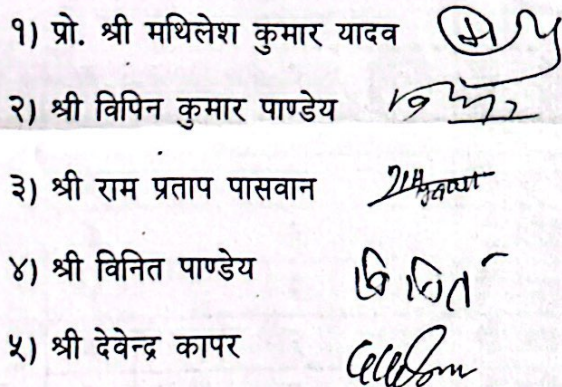 १) प्रो. श्री मथिलेश कुमार यादव
२) श्री विपिन कुमार पाण्डेय
३) श्री राम प्रताप पासवान
४) श्री विनित पाण्डेय विनित
५) श्री देवेन्द्र कापर